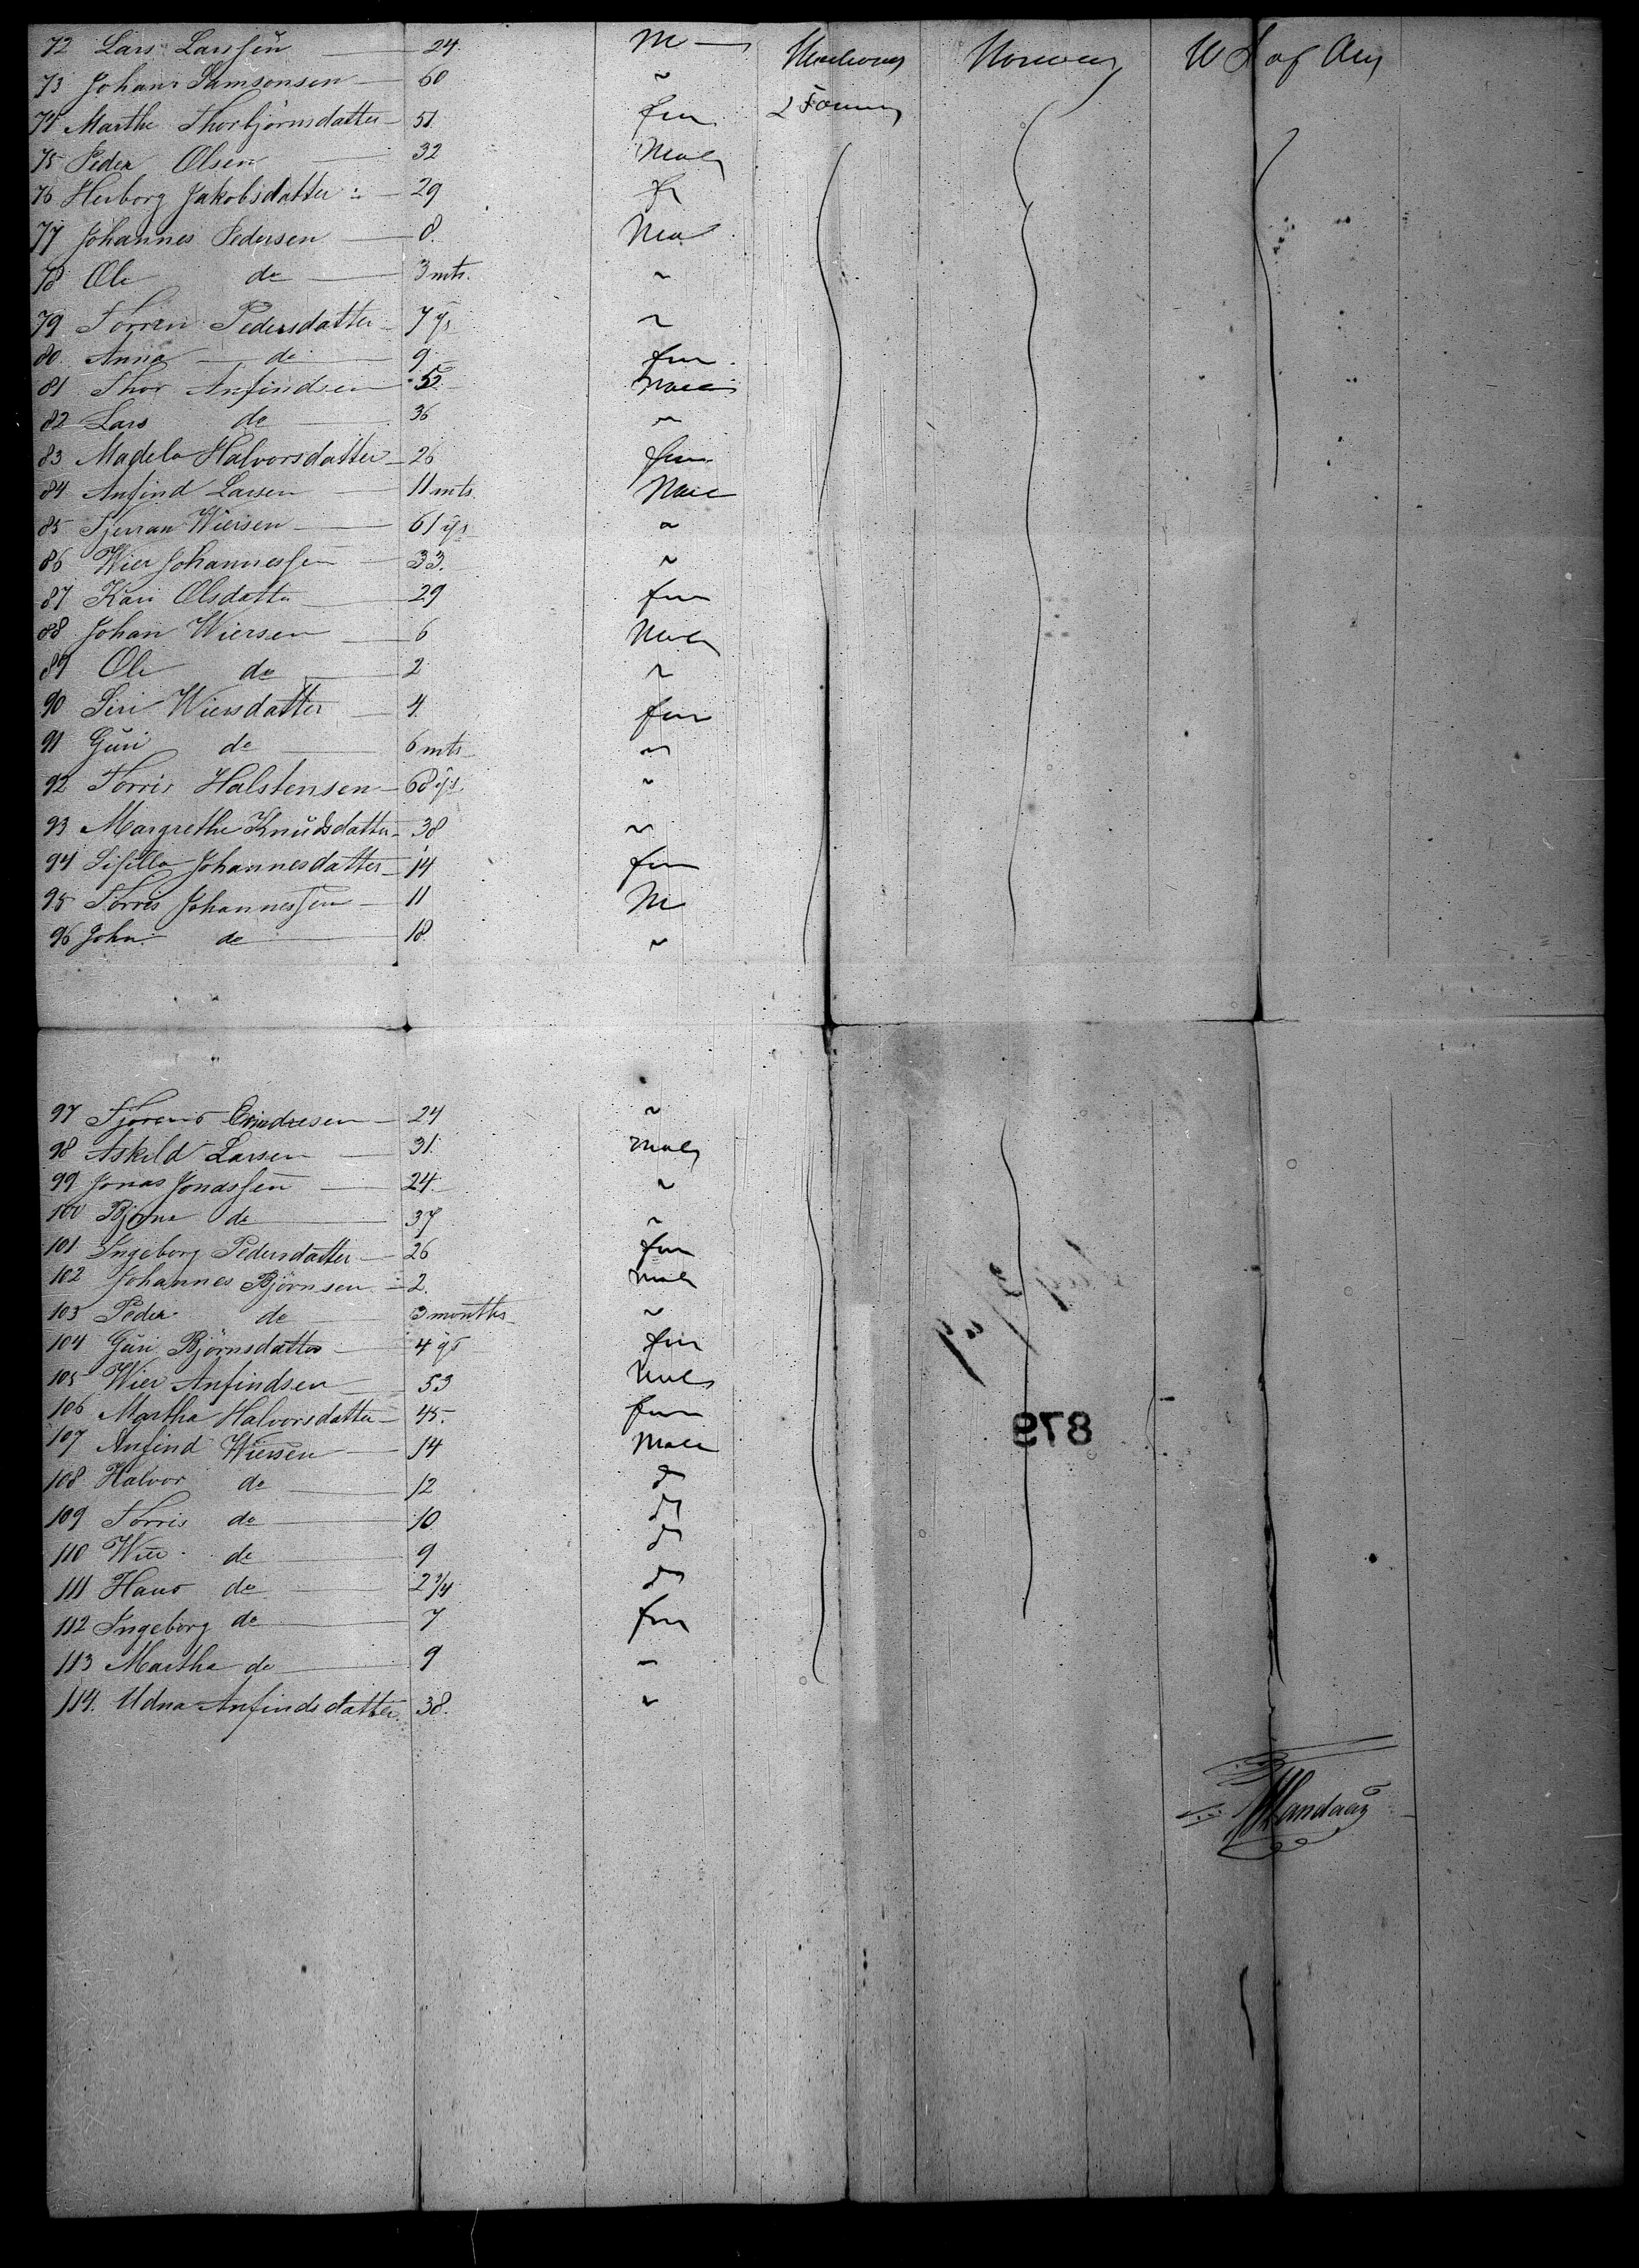 72 Lars Larssen 24. M Norway U S of Am
73 Johans Samsonsen 60 "
74 Marthe Thorbjörnsdatter 51. fem
75 Peder Olsen 32 Male
76 Herborg Jakobsdatter 29 f
77 Johannes Pedersen 8. Mal
78 Ole do 3 mts. "
79 Torren Pedersdatter 7 ys "
80. Anna do 9 fem
81 Thor Anfindsen 52 Male
82 Lars do 36 "
83 Madela Halvorsdatter 26 fem
84 Anfind Larsen 11 mts Male
85 Sjerran Wiersen 61 ys "
86 Wier Johannessen 33. "
87 Kari Olsdatter 29 fem
88 Johan Wiersen 6 Male
89 Ole do 2 "
90 Siri Wiersdatter 4. fem
91 Guri do 6 mts "
92 Torris Halstensen 68 ys. "
93 Margrethe Knudsdatter 38 "
94 Sisilla Johannesdatter 14 fem
95 Torris Johannessen 11 M
96 John do 18 "
97 Endresen 24 "
98 Askild Larsen 31. male
99 Jonas Jonassen 24. "
100 Bjørne do 37 "
101 Ingeborg Pedersdatter 26 fem
102 Johannes Björnsen 2. male
103 Peder do 3 months "
104 Guri Björnsdatter 4 ys fem
105 Wier Anfindsen 53 Male
106 Martha Halvorsdatter 45. fem
107 Anfind Wiersen 14 Male
108 Halvor do 12 do
109 Torris do 10 do
110 Wier do 9 do
111 Hans do 2 3/4 do
112 Ingeborg do 7 fem
113 Martha do 9 "
114. Udna Anfindsdatter. 38. "
879